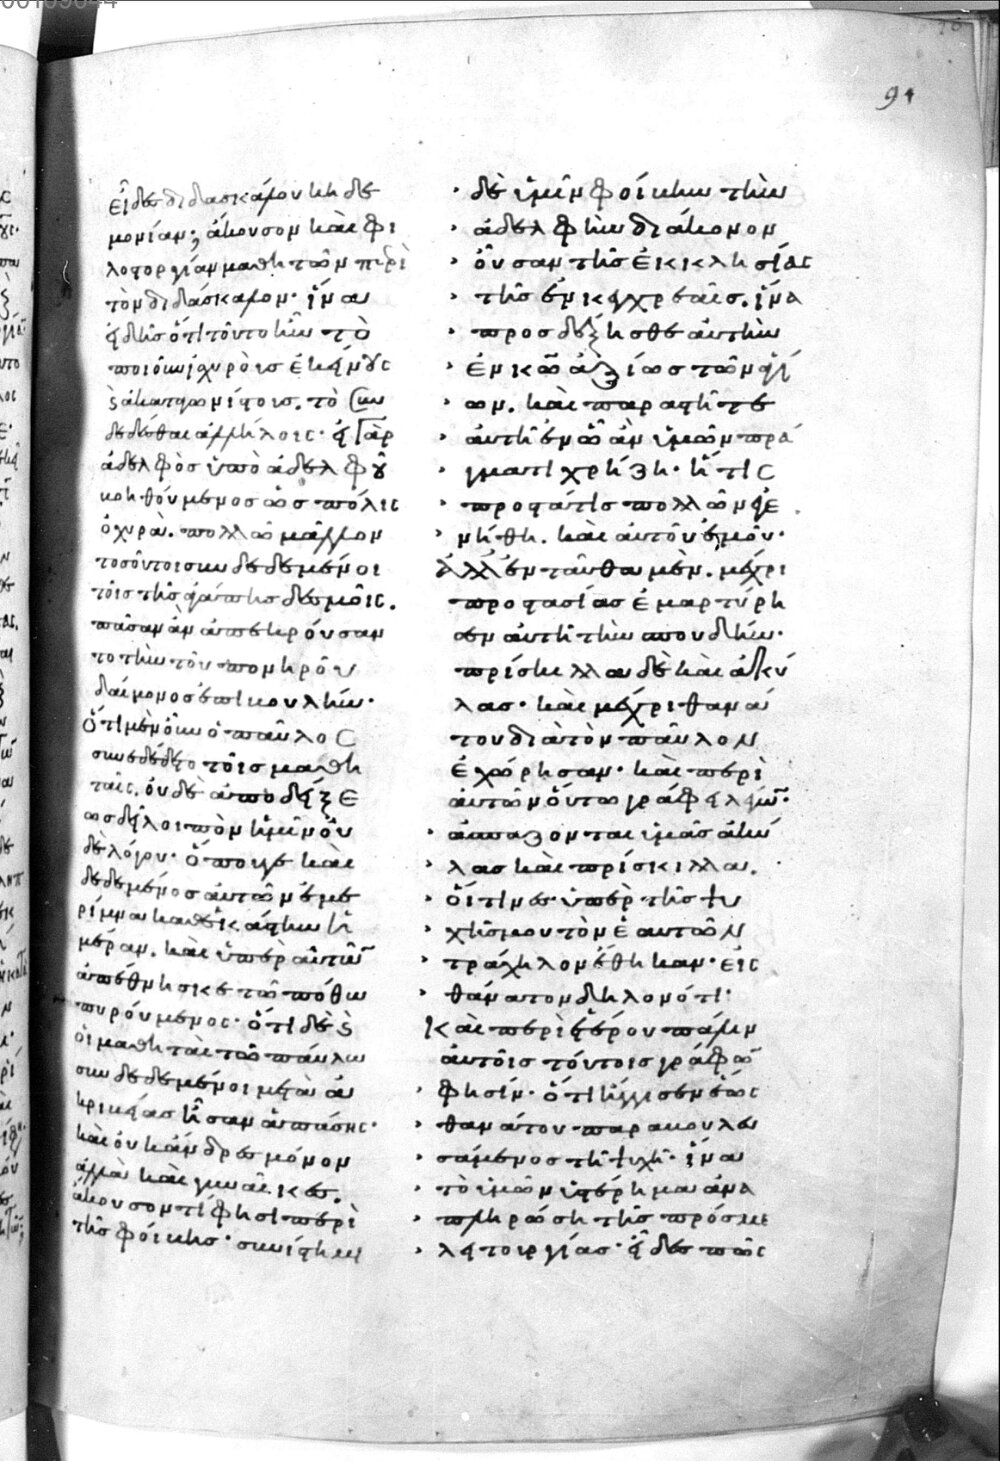 00159644
91
εἶδες διδασκάλου κηδε
μονίαν; ἄκουσον καὶ φι
λοστοργίαν μαθητῶν περὶ
τὸν διδάσκαλον· ἵνα
εἰδῆς ὅτι τοῦτο ἦν τὸ
ποιοῦν ἰσχυροὺς ἐκείνους
καὶ ἀκαταγωνίστους. τὸ συν
δεδέσθαι ἀλλήλοις· εἰ γὰρ
ἀδελφὸς ὑπὸ ἀδελφοῦ
βοηθούμενος ὡς πόλις
ὀχυρά. πολλῶ μᾶλλον
τοσοῦτοι συνδεδεμένοι
τοῖς τῆς ἀγάπης δεσμοῖς.
πᾶσαν ἂν ἀπεκρούσαν
το τὴν τοῦ πονηροῦ
δαίμονος ἐπιβουλήν·
Ὅτι μὲν οὖν ὁ παῦλος
συνεδέδετο τοῖς μαθη
ταῖς. οὐδὲ ἀποδείξε
ως δεῖ λοιπὸν ἡμῖν οὐ
δὲ λόγου· ὅπουγε καὶ
δεδεμένος αὐτῶν ἐμε
ρίμνα καθεκάστην ἡ
μέραν. καὶ ὑπὲρ αὐτῶν
ἀπέθνησκε τῶ πόθω
πυρούμενος· ὅτι δὲ καὶ
οἱ μαθηταὶ τῶ παύλω
συνδεδεμένοι μετὰ ἀ
κριβείας ἦσαν ἁπάσης·
καὶ οὐκ ἄνδρες μόνον
ἀλλὰ καὶ γυναῖκες.
ἄκουσον τί φησι περὶ
τῆς φοίβης· συνίστημι
δὲ ὑμῖν φοίβην τὴν
ἀδελφὴν διάκονον
οὖσαν τῆς ἐκκλησίας
τῆς ἐν κεγχρεαῖς. ἵνα
προσδέξησθε αὐτὴν
ἐν κῶ ἀξίως τῶν ἁγί
ων. καὶ παραστῆτε
αὐτῆ ἐν ὧ ἂν ὑμῶν πρά
γματι χρήζη· ἥτις
προστάτις πολλῶν ἐγε
νήθη. καὶ αὐτοῦ ἐμοῦ·
Ἀλλ' ἐνταῦθα μὲν. μέχρι
προστασίας ἐμαρτύρη
σεν αὐτῆ τὴν σπουδήν·
πρίσκιλλα δὲ καὶ ἀκύ
λας· καὶ μέχρι θανά
του διὰ τὸν παῦλον
ἐχώρησαν· καὶ περὶ
αὐτῶν οὕτω γράφει λέγων·
ἀσπάζονται ὑμᾶς ἀκύ
λας καὶ πρίσκιλλα.
οἵτινες ὑπὲρ τῆς ψυ
χῆς μου τὸν ἑαυτῶν
τράχηλον ἔθηκαν· εἰς
θάνατον δηλονότι·
Καὶ περὶ ἑτέρου πάλιν
αὐτοῖς τούτοις γράφων
φησίν· ὅτι ἤγγισεν ἕως
θανάτου παραβουλευ
σάμενος τῆ ψυχῆ· ἵνα
τὸ ὑμῶν ὑστέρημα ἀνα
πληρώση τῆς πρός με
λειτουργίας· εἶδες πῶς